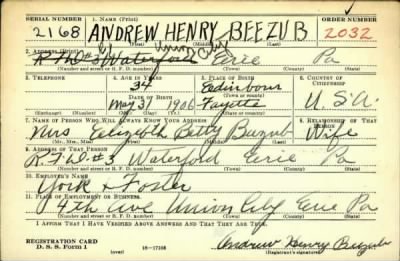 SERIAL NUMBER 1. NAME (Print) ORDER NUMBER
2168 ANDREW HENRY BEEZUB 2032
(First) (Middle) (Last)
2. ADDRESS (Print)
R.F.D #3 Waterford Union City Erie Pa
(Number and street or R. F. D. number) (Town) (County) (State)
3. TELEPHONE 4. AGE IN YEARS 5. PLACE OF BIRTH 6. COUNTRY OF CITIZENSHIP
34 Edinbour
DATE OF BIRTH (Town or county)
May 31 1906 Fayette U.S.A.
(Exchange) (Number) (Mo.) (Day) (Yr.) (State or country)
7. NAME OF PERSON WHO WILL ALWAYS KNOW YOUR ADDRESS 8. RELATIONSHIP OF THAT PERSON
Mrs Elizabeth Betty Beezub Wife
(Mr., Mrs., Miss) (First) (Middle) (Last)
9. ADDRESS OF THAT PERSON
R.F.D. #3 Waterford Erie Pa
(Number and street or R. F. D. number) (Town) (County) (State)
10. EMPLOYER'S NAME
York & Foster
11. PLACE OF EMPLOYMENT OR BUSINESS
4th ave Union City Erie Pa
(Number and street or R. F. D. number) (Town) (County) (State)
I AFFIRM THAT I HAVE VERIFIED ABOVE ANSWERS AND THAT THEY ARE TRUE.
REGISTRATION CARD
D. S. S. Form 1 (over) 16—17105 Andrew Henry Beezub
(Registrant's signature)